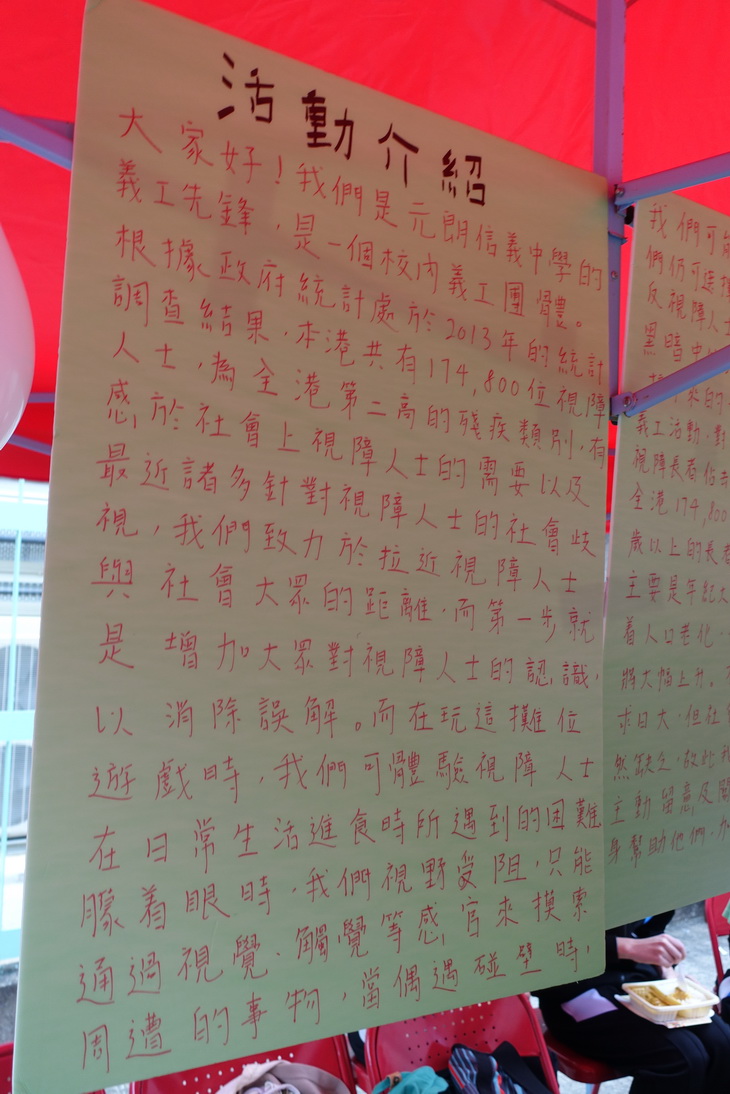 活動介紹
大家好！我們是元朗信義中學的
義工先鋒，是一個校內義工團體。
根據政府統計處於2013年的統計
調查結果，本港共有174,800位視障
人士，為全港第二高的殘疾類別，有
感於社會上視障人士的需要以及
最近諸多針對視障人士的社會歧
視，我們致力於拉近視障人士
與社會大眾的距離，而第一步就
是增加大眾對視障人士的認識，
以消除誤解。而在玩這攤位
遊戲時，我們可體驗視障人士
在日常生活進食時所遇到的困難
矇着眼時，我們視野受阻，只能
通過視覺、觸覺等感官來摸索
周遭的事物，當偶遇碰壁時，
我們可
們仍可選擇
反視障人士
黑暗中
義工活動，對
視障長者佔
全港174,800
歲以上的長者
主要是年紀大
着人口老化，
將大幅上升。
求日大，但社
然缺乏，故此我
主動留意及關
身幫助他們，